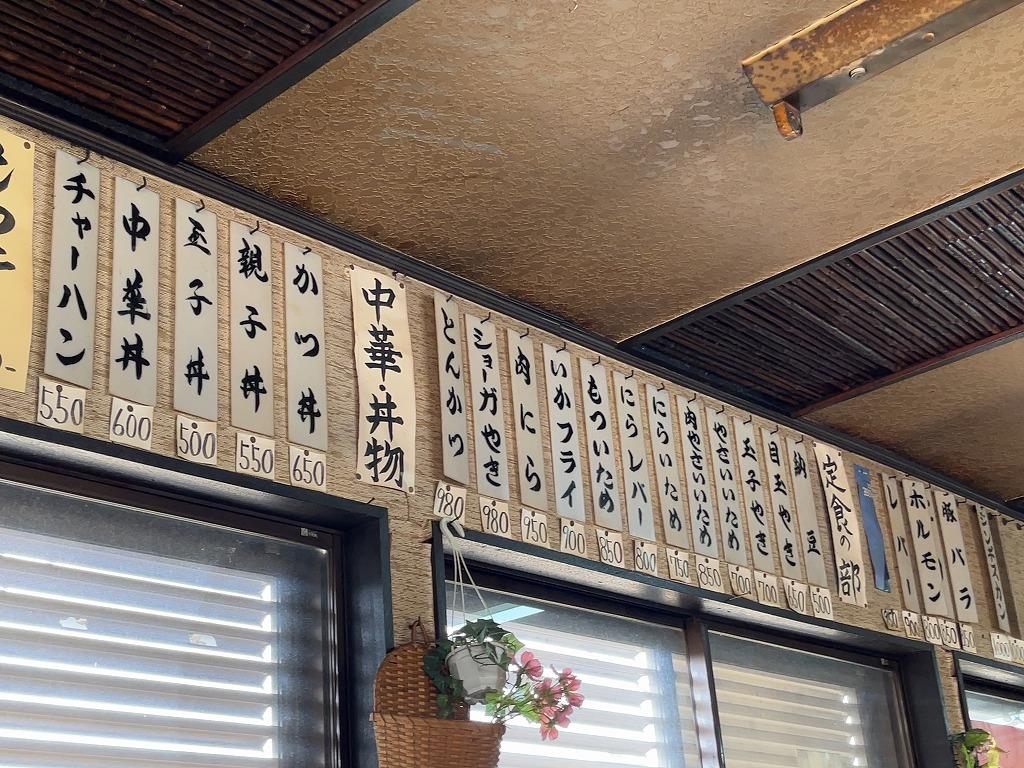 ジンギスカン
豚バラ
ホルモン
レバー
定食の部
納豆
500
目玉やき
650
玉子やき
700
やさいいため
700
肉やさいいため
850
にらいため
750
にらレバー
800
もついため
850
いかフライ
900
肉にら
950
ショーガやき
980
とんかつ
980
中華・丼物
かつ丼
650
親子丼
550
玉子丼
500
中華丼
600
チャーハン
550